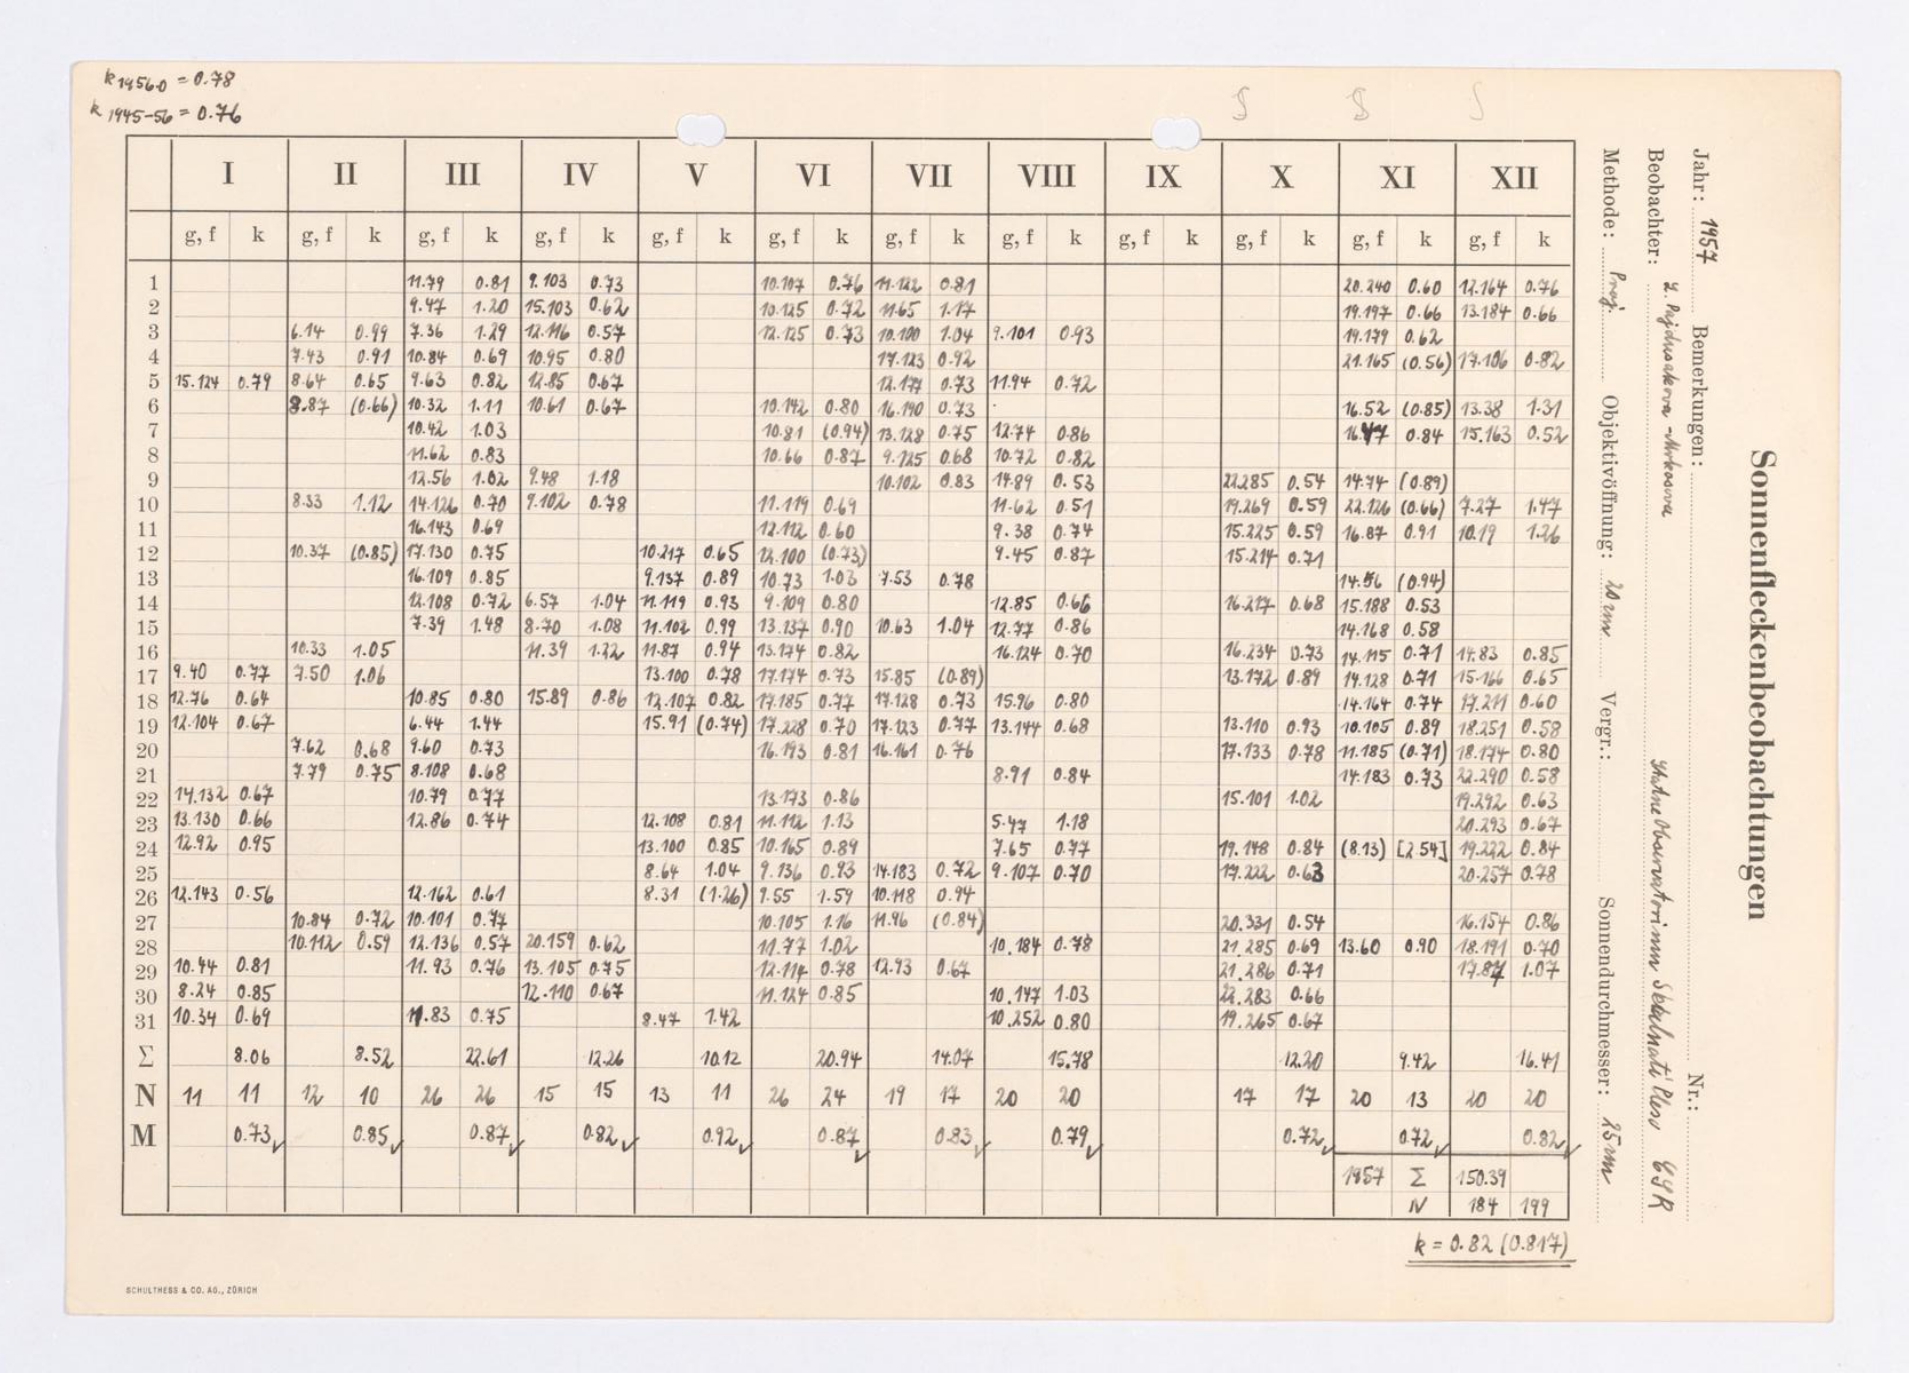 k 1956.0 = 0.78
k 1945-56 = 0.76
I II III IV V VI VII VIII IX X XI XII
g, f k g, f k g, f k g, f k g, f k g, f k g, f k g, f k g, f k g, f k g, f k g, f k
1 11.79 0.81 9.103 0.73 10.107 0.76 11.122 0.81 20.240 0.60 12.164 0.76
2 9.47 1.20 15.103 0.62 10.125 0.72 11.65 1.17 19.197 0.66 13.184 0.66
3 6.14 0.99 7.36 1.29 12.116 0.57 12.125 0.73 10.100 1.04 9.101 0.93 19.179 0.62
4 7.43 0.91 10.84 0.69 10.95 0.80 17.123 0.92 21.165 (0.56) 17.106 0.82
5 15.124 0.79 8.64 0.65 9.63 0.82 12.85 0.67 12.177 0.73 11.94 0.72
6 8.87 (0.66) 10.32 1.11 10.61 0.67 10.142 0.80 16.190 0.73 16.52 (0.85) 13.38 1.31
7 10.42 1.03 10.81 (0.94) 13.128 0.75 12.74 0.86 16.47 0.84 15.163 0.52
8 11.62 0.83 10.66 0.87 9.125 0.68 10.72 0.82
9 12.56 1.02 9.48 1.18 10.102 0.83 14.89 0.53 22.285 0.54 14.74 (0.89)
10 8.33 1.12 14.126 0.70 9.102 0.78 11.119 0.69 11.62 0.51 19.269 0.59 22.126 (0.66) 7.27 1.47
11 16.143 0.69 12.112 0.60 9.38 0.74 15.225 0.59 16.87 0.91 10.19 1.26
12 10.37 (0.85) 17.130 0.75 10.217 0.65 12.100 (0.73) 9.45 0.87 15.214 0.71
13 16.109 0.85 9.137 0.89 10.73 1.03 7.53 0.78 14.56 (0.94)
14 12.108 0.72 6.57 1.04 11.119 0.93 9.109 0.80 12.85 0.66 16.217 0.68 15.188 0.53
15 7.39 1.48 8.70 1.08 11.102 0.99 13.137 0.90 10.63 1.04 12.77 0.86 14.168 0.58
16 10.33 1.05 11.39 1.22 11.87 0.94 13.174 0.82 16.124 0.70 16.234 0.73 14.115 0.71 14.83 0.85
17 9.40 0.77 7.50 1.06 13.100 0.78 17.174 0.73 15.85 (0.89) 13.172 0.89 14.128 0.71 15.166 0.65
18 12.76 0.64 10.85 0.80 15.89 0.86 12.107 0.82 17.185 0.77 17.128 0.73 15.96 0.80 14.164 0.74 17.211 0.60
19 12.104 0.67 6.44 1.44 15.91 (0.74) 17.228 0.70 17.123 0.77 13.144 0.68 13.110 0.93 10.105 0.89 18.251 0.58
20 7.62 0.68 9.60 0.73 16.193 0.81 16.161 0.76 17.133 0.78 11.185 (0.71) 18.174 0.80
21 7.79 0.75 8.108 0.68 8.91 0.84 14.183 0.73 22.290 0.58
22 14.132 0.67 10.79 0.77 13.173 0.86 15.101 1.02 19.292 0.63
23 13.130 0.66 12.86 0.74 12.108 0.81 11.112 1.13 5.47 1.18 20.293 0.67
24 12.92 0.95 13.100 0.85 10.165 0.89 7.65 0.77 19.148 0.84 (8.13) [2.54] 19.222 0.84
25 8.64 1.04 9.136 0.93 14.183 0.72 9.107 0.70 17.222 0.63 20.257 0.78
26 12.143 0.56 12.162 0.61 8.31 (1.26) 9.55 1.59 10.118 0.94
27 10.84 0.72 10.101 0.77 10.105 1.16 11.96 (0.84) 20.331 0.54 16.154 0.86
28 10.112 0.59 12.136 0.57 20.159 0.62 11.77 1.02 10.184 0.78 21.285 0.69 13.60 0.90 18.191 0.70
29 10.44 0.81 11.93 0.76 13.105 0.75 12.114 0.78 12.93 0.67 21.286 0.71 17.87 1.07
30 8.24 0.85 12.110 0.67 11.124 0.85 10.147 1.03 22.283 0.66
31 10.34 0.69 11.83 0.75 8.47 1.42 10.252 0.80 19.265 0.67
Σ 8.06 8.52 22.61 12.26 10.12 20.94 14.07 15.78 12.20 9.42 16.41
N 11 11 12 10 26 26 15 15 13 11 26 24 19 17 20 20 17 17 20 13 20 20
M 0.73 0.85 0.87 0.82 0.92 0.87 0.83 0.79 0.72 0.72 0.82
1957 Σ 150.39
N 184 199
k = 0.82 (0.817)
SCHULTHESS & CO. AG., ZÜRICH
Sonnenfleckenbeobachtungen
Jahr: 1957 Bemerkungen: Nr.:
Beobachter: L. Pajdusakova-Mrkosova Observatorium Skalnaté Pleso ČSR
Methode: Proj. Objektivöffnung: 20 cm Vergr.: Sonnendurchmesser: 25 cm